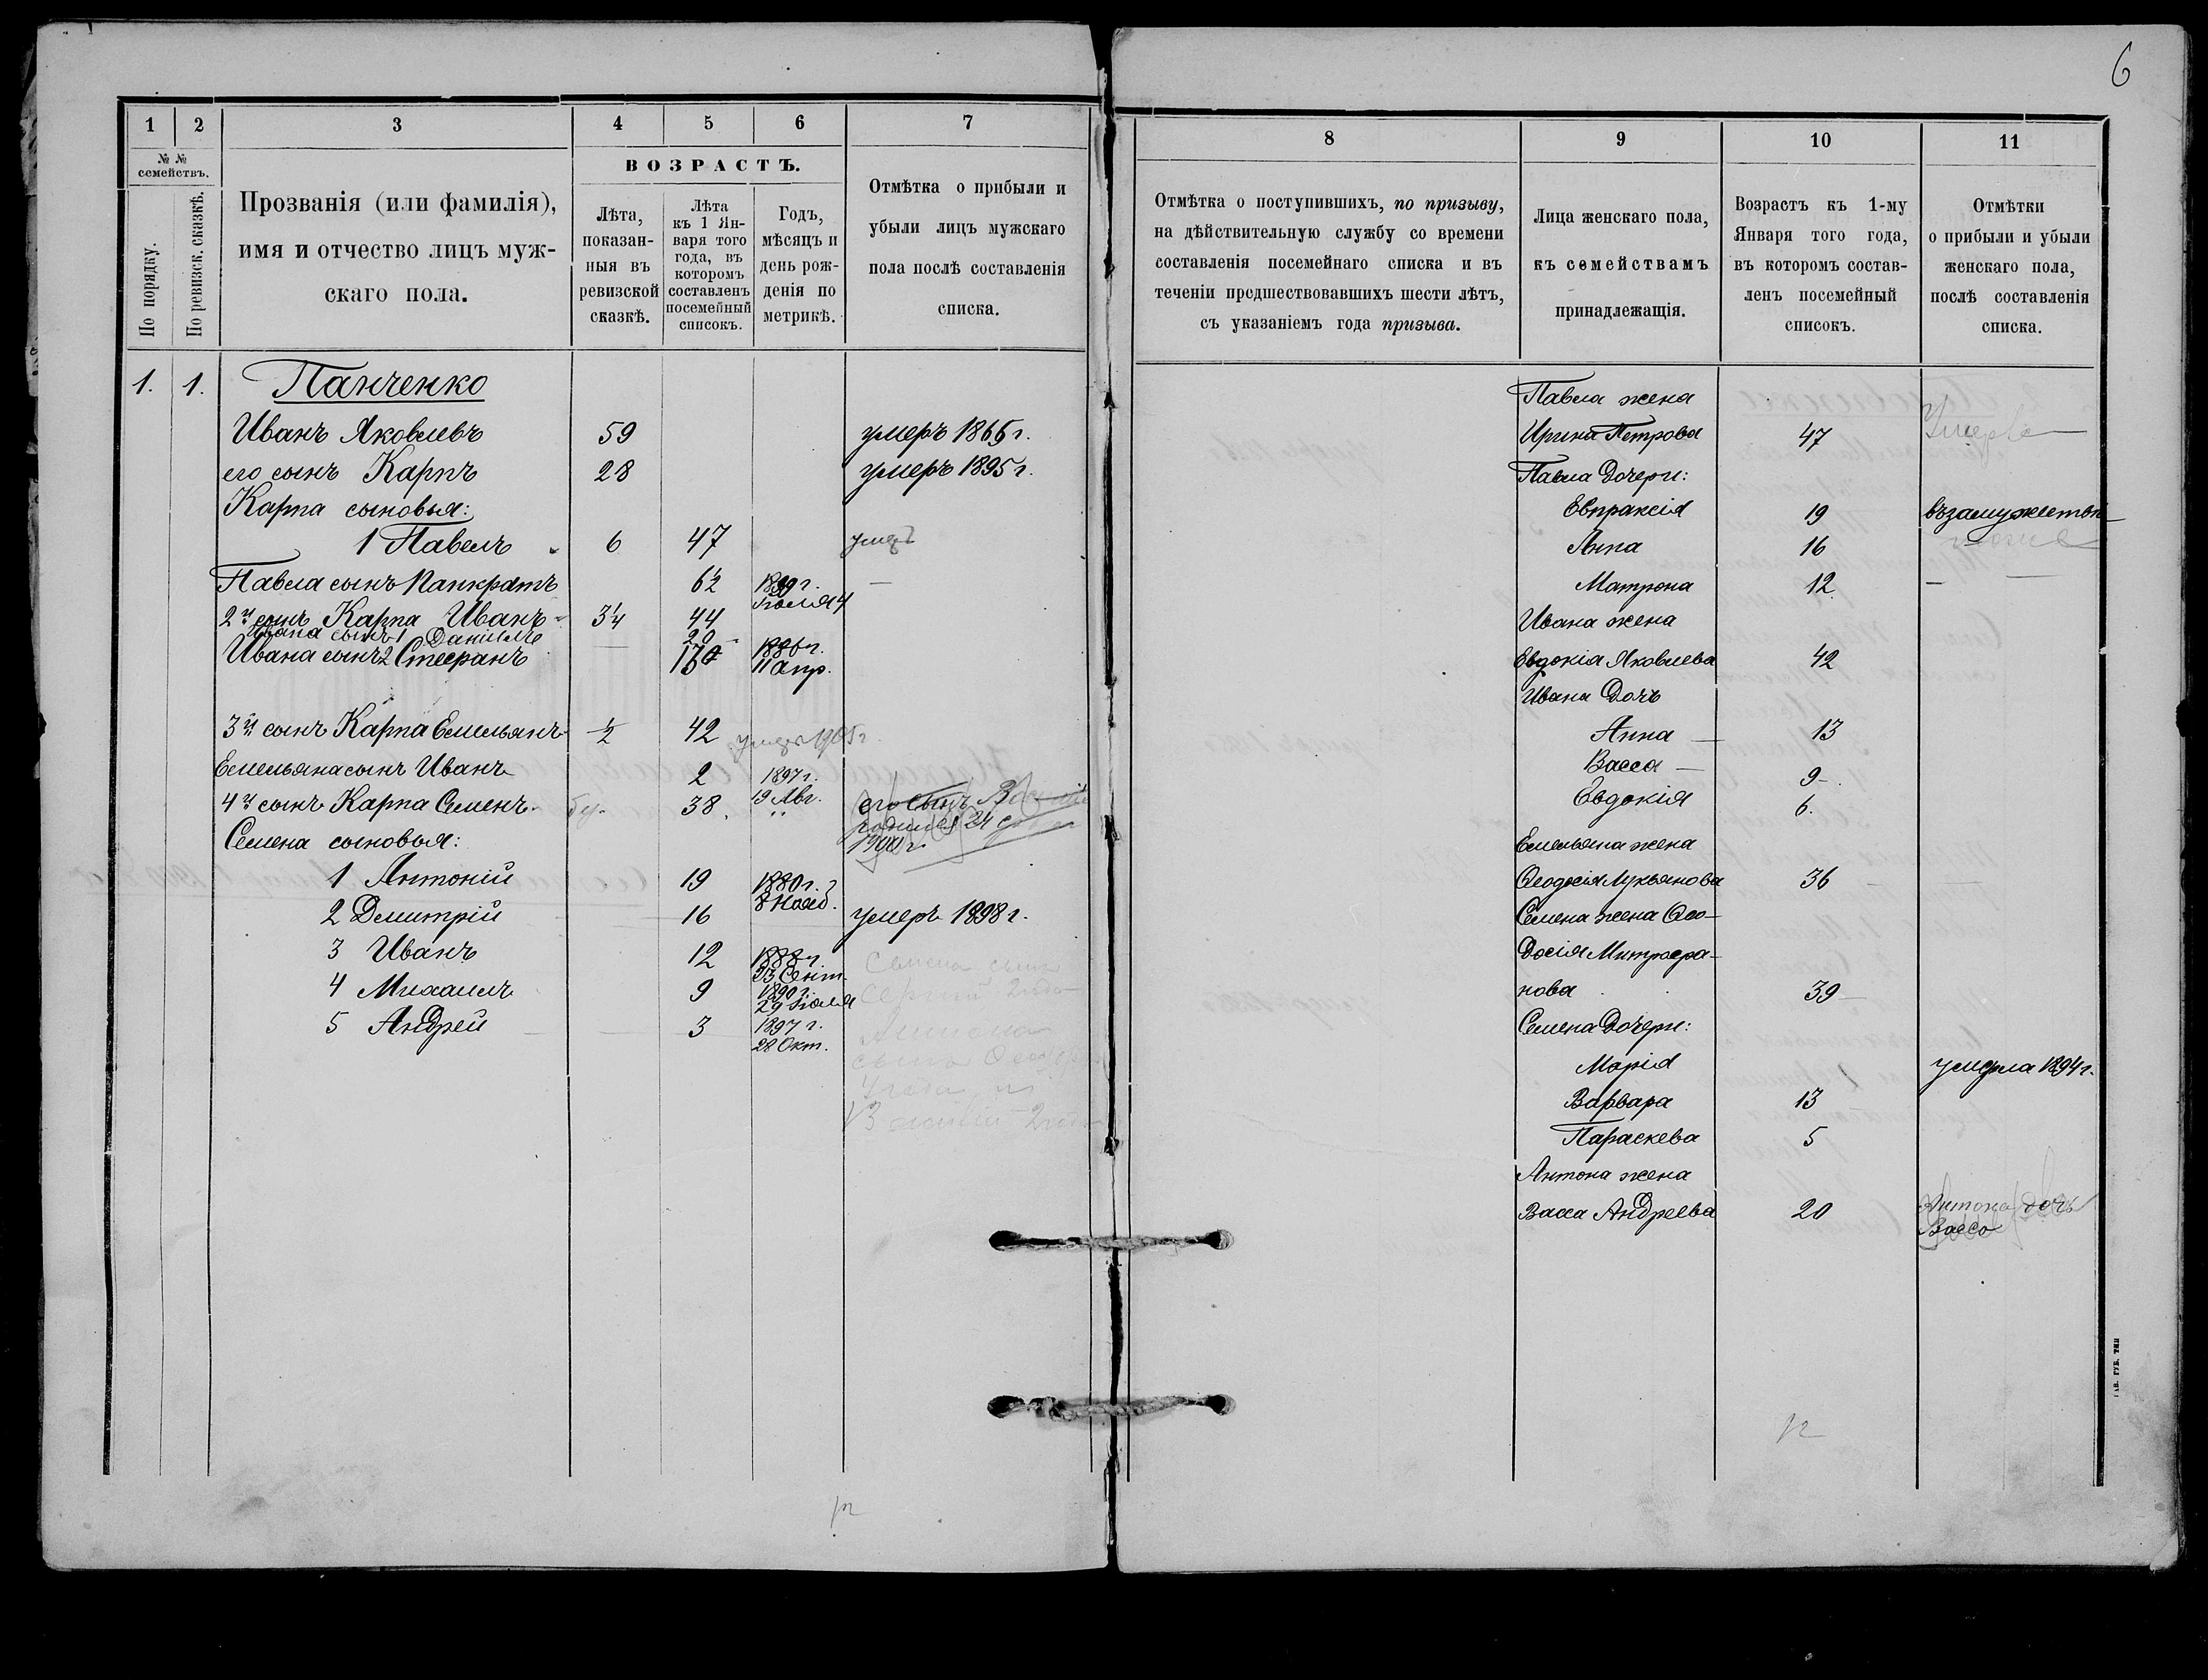 6
1
2
3
4
5
6
7
№ №
семействъ.
По порядку.
По ревизск. сказкѣ.
Прозванія (или фамилія),
имя и отчество лицъ муж-
скаго пола.
ВОЗРАСТЪ.
Лѣта,
показан-
ныя въ
ревизской
сказкѣ.
Лѣта
къ 1 Ян-
варя того
года, въ
которомъ
составленъ
посемейный
списокъ.
Годъ,
мѣсяцъ и
день рож-
денія по
метрикѣ.
Отмѣтка о прибыли и
убыли лицъ мужскаго
пола послѣ составленія
списка.
1. 1. Панченко
Иванъ Яковлевъ 59 умеръ 1865 г.
его сынъ Карпъ 28 умеръ 1895 г.
Карпа сыновья:
1 Павелъ 6 47 умеръ
Павла сынъ Панкратъ 6½ 1899 г. —
Іюля 4
2й сынъ Карпа Иванъ 3¼ 44
Ивана сынъ 1 Даниилъ 20
Ивана сынъ 2 Стефанъ — 17 1880 г.
11 Апр.
3й сынъ Карпа Емельянъ ½ 42 умеръ 1905 г
Емельяна сынъ Иванъ 2 1897 г.
19 Авг.
4й сынъ Карпа Семенъ 38 „ его сынъ
родился 24
1900 г.
Семена сыновья:
1 Антоній 19 1880 г.
8 Нояб.
2 Дмитрій 16 умеръ 1898 г.
3 Иванъ 12 1888 г.
23 Сент.
4 Михаилъ 9 1890 г.
29 Іюля
5 Андрей 3 1897 г.
28 Окт.
Семена сынъ
Сергій 2
сынъ
8
9
10
11
Отмѣтка о поступившихъ, по призыву,
на дѣйствительную службу со времени
составленія посемейнаго списка и въ
теченіи предшествовавшихъ шести лѣтъ,
съ указаніемъ года призыва.
Лица женскаго пола,
къ семействамъ
принадлежащія.
Возрастъ къ 1-му
Января того года,
въ которомъ состав-
ленъ посемейный
списокъ.
Отмѣтки
о прибыли и убыли
женскаго пола,
послѣ составленія
списка.
Павла жена
Ирина Петрова 47 Умерла
Павла Дочери:
Евпраксія 19 въ замужествѣ
Анна 16 тоже
Матрона 12. — —
Ивана жена
Евдокія Яковлева 42
Ивана Дочь
Анна — 13
Васса — 9 –
Евдокія 6.
Емельяна жена
Ѳеодосія Лукьянова 36
Семена жена Ѳео-
досія Митрофа-
нова 39 –
Семена Дочери:
Марія умерла 1894 г.
Варвара 13
Параскева 5
Антона жена
Васса Андреева 20 Антона дочь
Васса